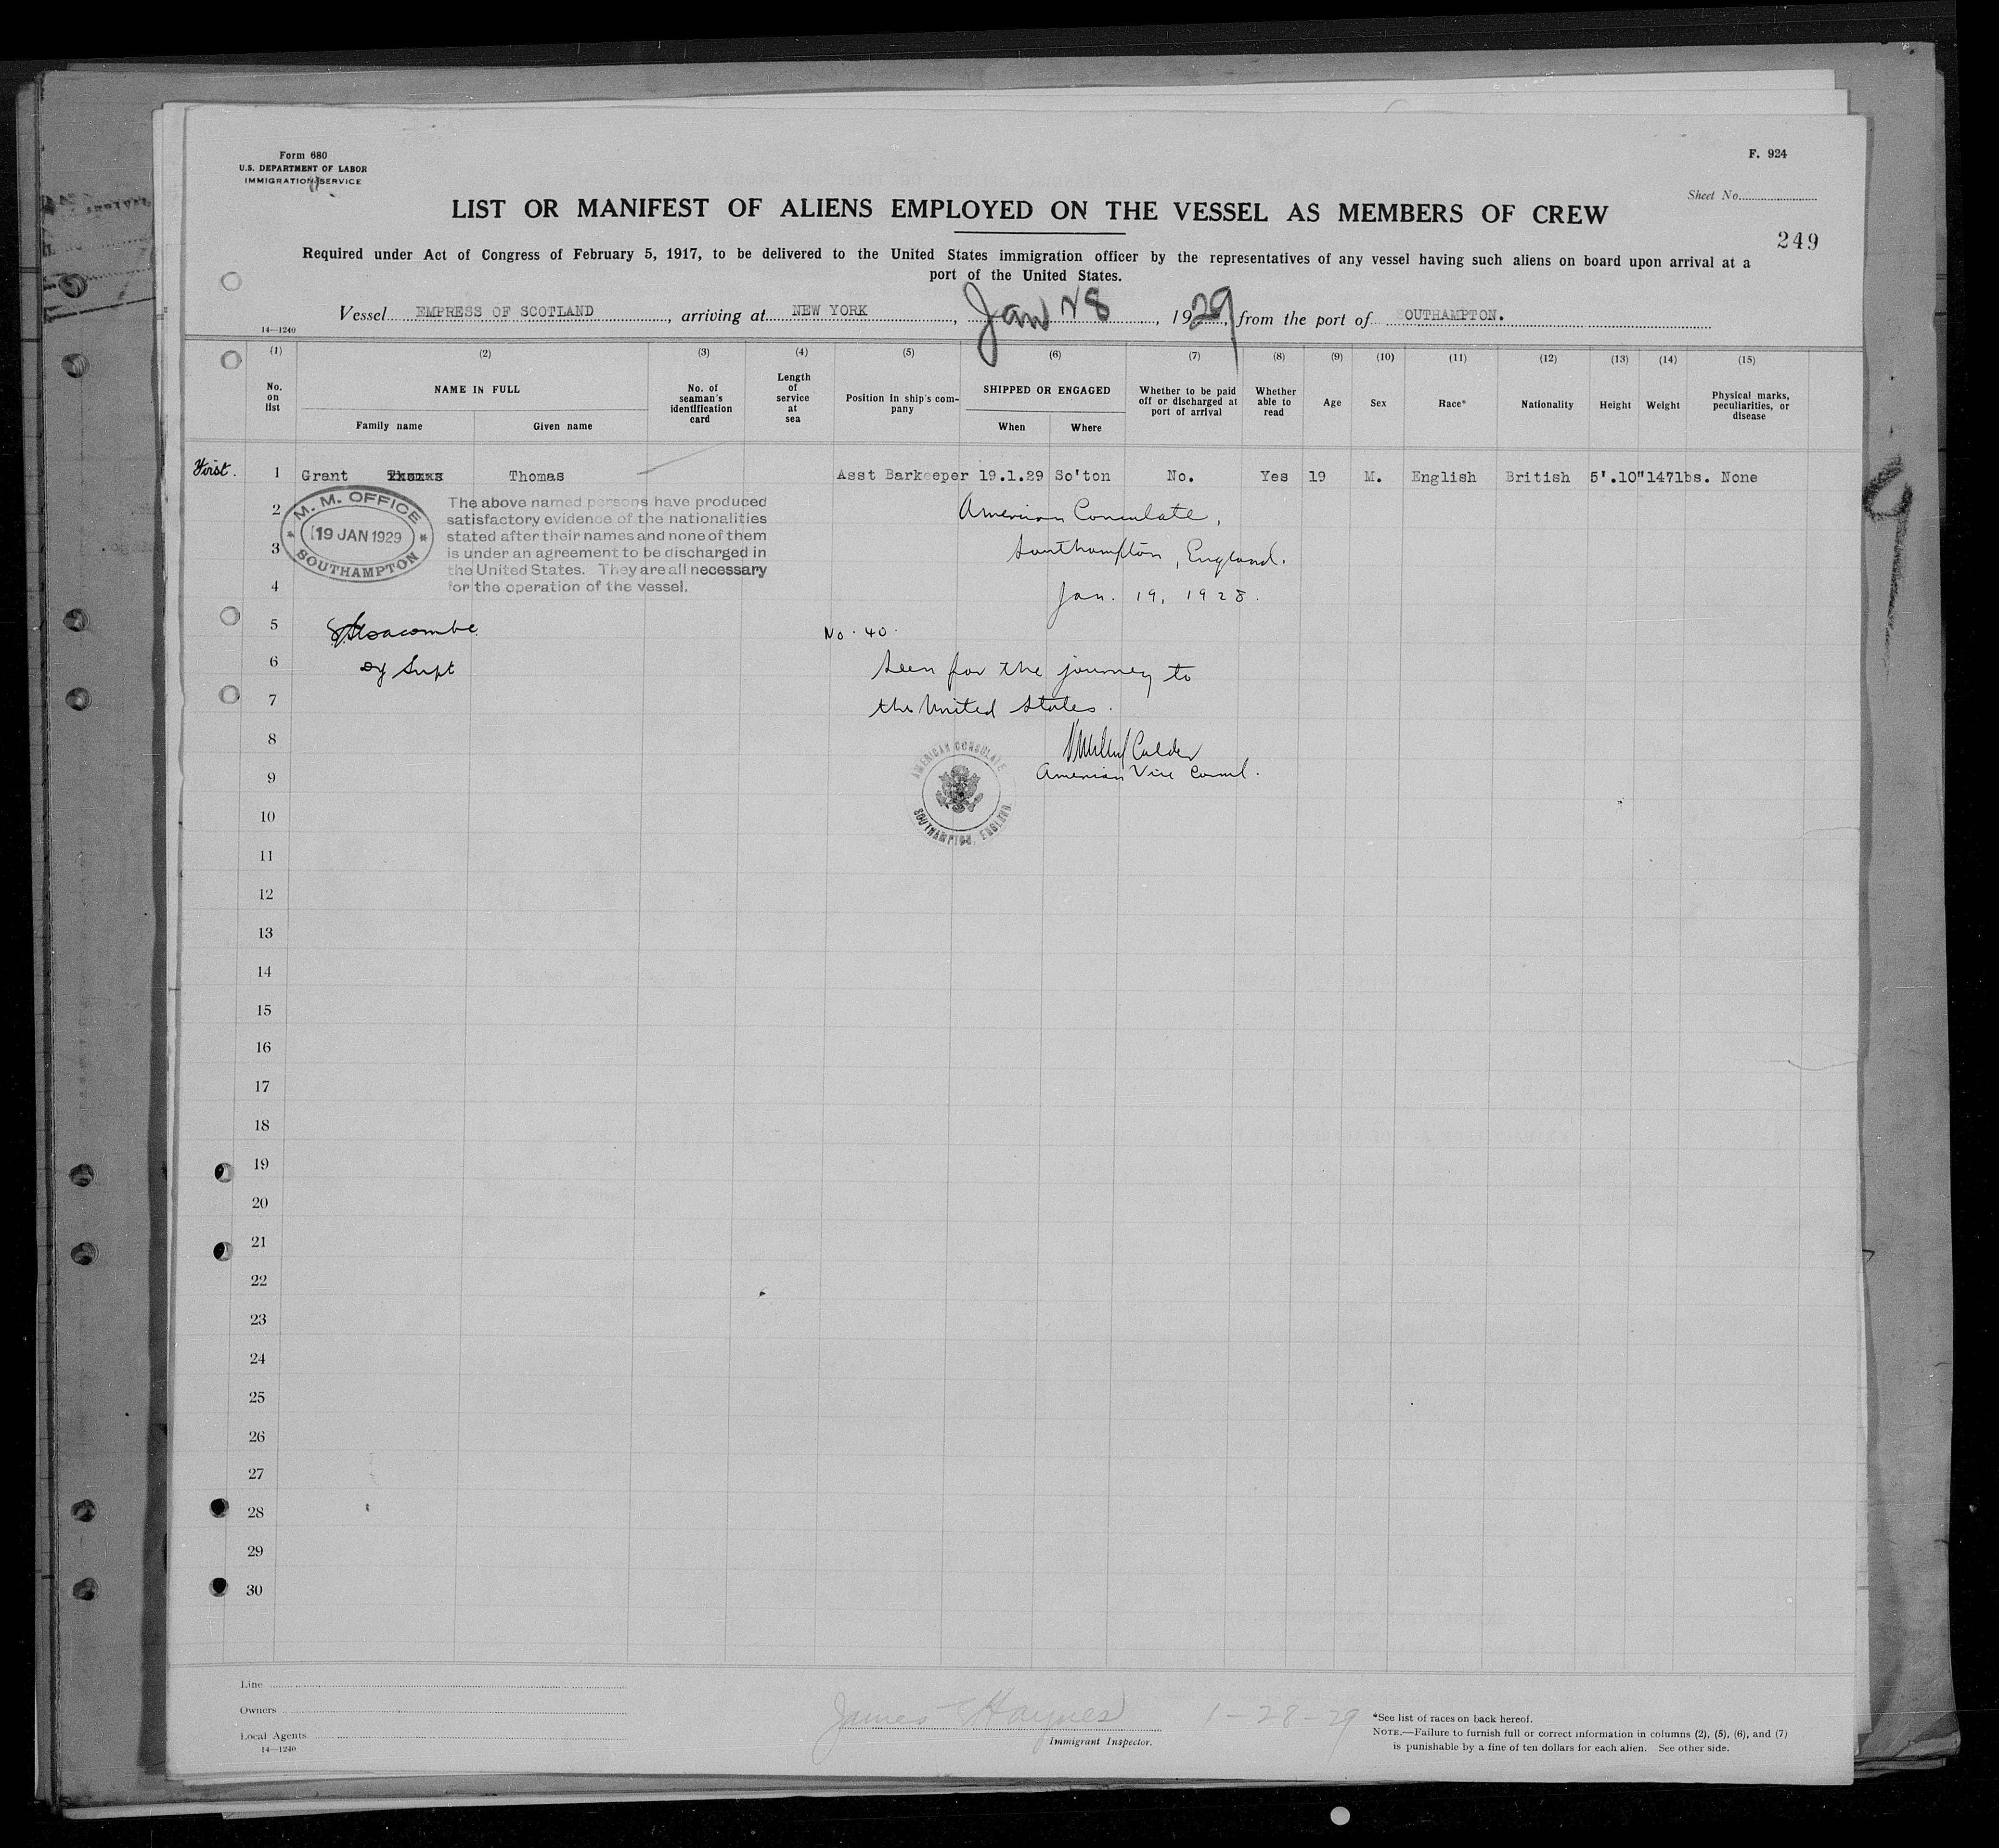 Form 680
U.S. DEPARTMENT OF LABOR
IMMIGRATION SERVICE
F. 924
Sheet No.
LIST OR MANIFEST OF ALIENS EMPLOYED ON THE VESSEL AS MEMBERS OF CREW
249
Required under Act of Congress of February 5, 1917, to be delivered to the United States immigration officer by the representatives of any vessel having such aliens on board upon arrival at a
port of the United States.
Vessel EMPRESS OF SCOTLAND, arriving at NEW YORK, Jan 28, 1929, from the port of SOUTHAMPTON.
14—1240
(1) (2) (3) (4) (5) (6) (7) (8) (9) (10) (11) (12) (13) (14) (15)
No. on list
NAME IN FULL
Family name
Given name
No. of seaman's identification card
Length of service at sea
Position in ship's company
SHIPPED OR ENGAGED
When
Where
Whether to be paid off or discharged at port of arrival
Whether able to read
Age
Sex
Race*
Nationality
Height
Weight
Physical marks, peculiarities, or disease
First. 1 Grant Thomas Thomas Asst Barkeeper 19.1.29 So'ton No. Yes 19 M. English British 5'.10" 147lbs. None
M. M. OFFICE
19 JAN 1929
SOUTHAMPTON
The above named persons have produced
satisfactory evidence of the nationalities
stated after their names and none of them
is under an agreement to be discharged in
the United States. They are all necessary
for the operation of the vessel.
2
American Consulate,
3
Southampton, England.
4
Jan. 19, 1928.
5
No. 40.
6
Dy Supt
Seen for the journey to
7
the United States.
8
Calder
9
American Vice Consul.
AMERICAN CONSULATE
SOUTHAMPTON, ENGLAND
10
11
12
13
14
15
16
17
18
19
20
21
22
23
24
25
26
27
28
29
30
Line
Owners
Local Agents
14—1240
James E Haynes 1-28-29
Immigrant Inspector.
*See list of races on back hereof.
NOTE.—Failure to furnish full or correct information in columns (2), (5), (6), and (7)
is punishable by a fine of ten dollars for each alien. See other side.